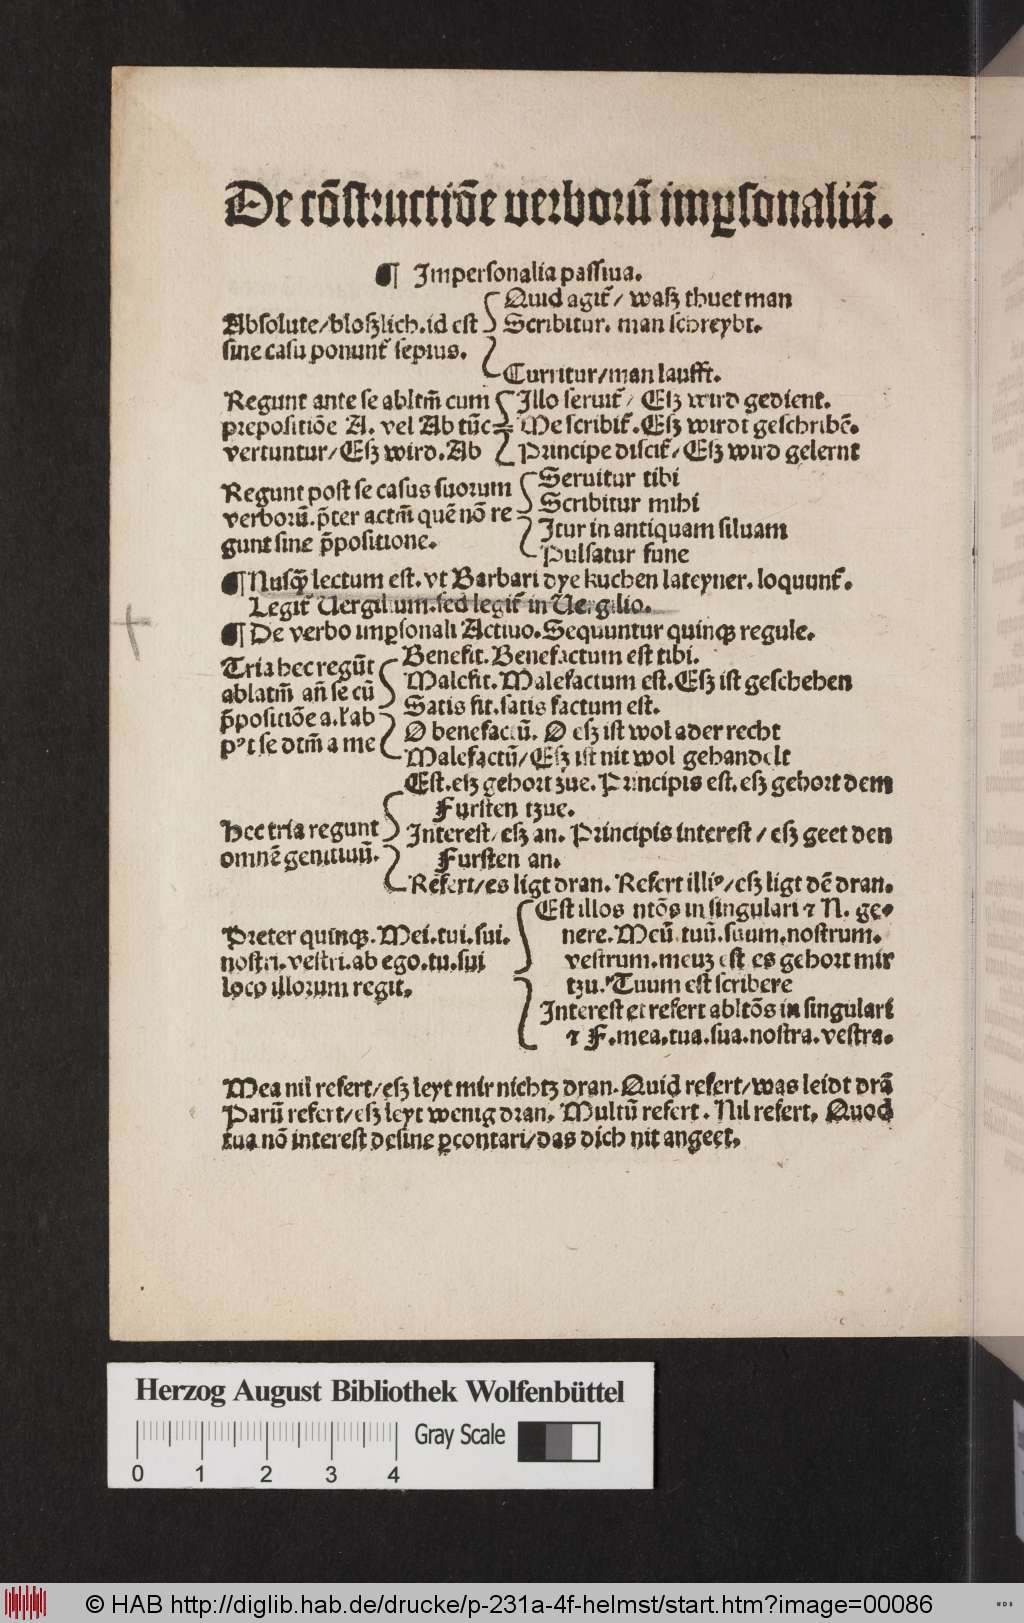 De cōstructiōe verborū imꝑsonaliū.
¶ Impersonalia passiua.
Absolute/bloszlich.id est
sine casu ponunt᷑ sepius.
Quid agit᷑/ wasz thuet man
Scribitur. man schreybt.
Curritur/man laufft.
Regunt ante se abltm̄ cum
prepositiōe A. vel Ab tūc
vertuntur/Esz wird. Ab
Illo seruit᷑/ Esz wird gedient.
Me scribit᷑.Esz wirdt geschribē.
Principe discit᷑/Esz wird gelernt
Regunt post se casus suorum
verborū.p̄ter actm̄ quē nō re
gunt sine p̄positione.
Seruitur tibi
Scribitur mihi
Itur in antiquam siluam
Pulsatur fune
¶ Nusqꝫ lectum est.vt Barbari dye kuchen lateyner.loquunt᷑.
Legit᷑ Uergilium.sed legit᷑ in Uergilio.
¶ De verbo imꝑsonali Actiuo.Sequuntur quinqꝫ regule.
Tria hec regūt
ablatm̄ an̄ se cū
p̄positiōe a.ł ab
pꝰt se dtm̄ a me
Benefit.Benefactum est tibi.
Malefit.Malefactum est.Esz ist geschehen
Satis fit.satis factum est.
O benefactū. O esz ist wol ader recht
Malefactū/Esz ist nit wol gehandelt
Hec tria regunt
omnē genitiuū.
Est.esz gehort zue. Principis est.esz gehort dem
Fursten tzue.
Interest/esz an. Principis interest/esz geet den
Fursten an.
Refert/es ligt dran. Refert illiꝰ/esz ligt dē dran.
Preter quinqꝫ.Mei.tui.sui.
nostri.vestri.ab ego.tu.sui
loco illorum regit.
Est illos ntōs in singulari ⁊ N. ge-
nere.Meū.tuū.suum.nostrum.
vestrum.meuꝫ est es gehort mir
tzu. Tuum est scribere
Interest et refert abltōs in singulari
⁊ F.mea.tua.sua.nostra.vestra.
Mea nil refert/esz leyt mir nichtz dran.Quid refert/was leidt drā
Parū refert/esz leyt wenig dran. Multū refert. Nil refert. Quod
tua nō interest desine ꝑcontari/das dich nit angeet.
Herzog August Bibliothek Wolfenbüttel
Gray Scale
0 1 2 3 4
© HAB http://diglib.hab.de/drucke/p-231a-4f-helmst/start.htm?image=00086